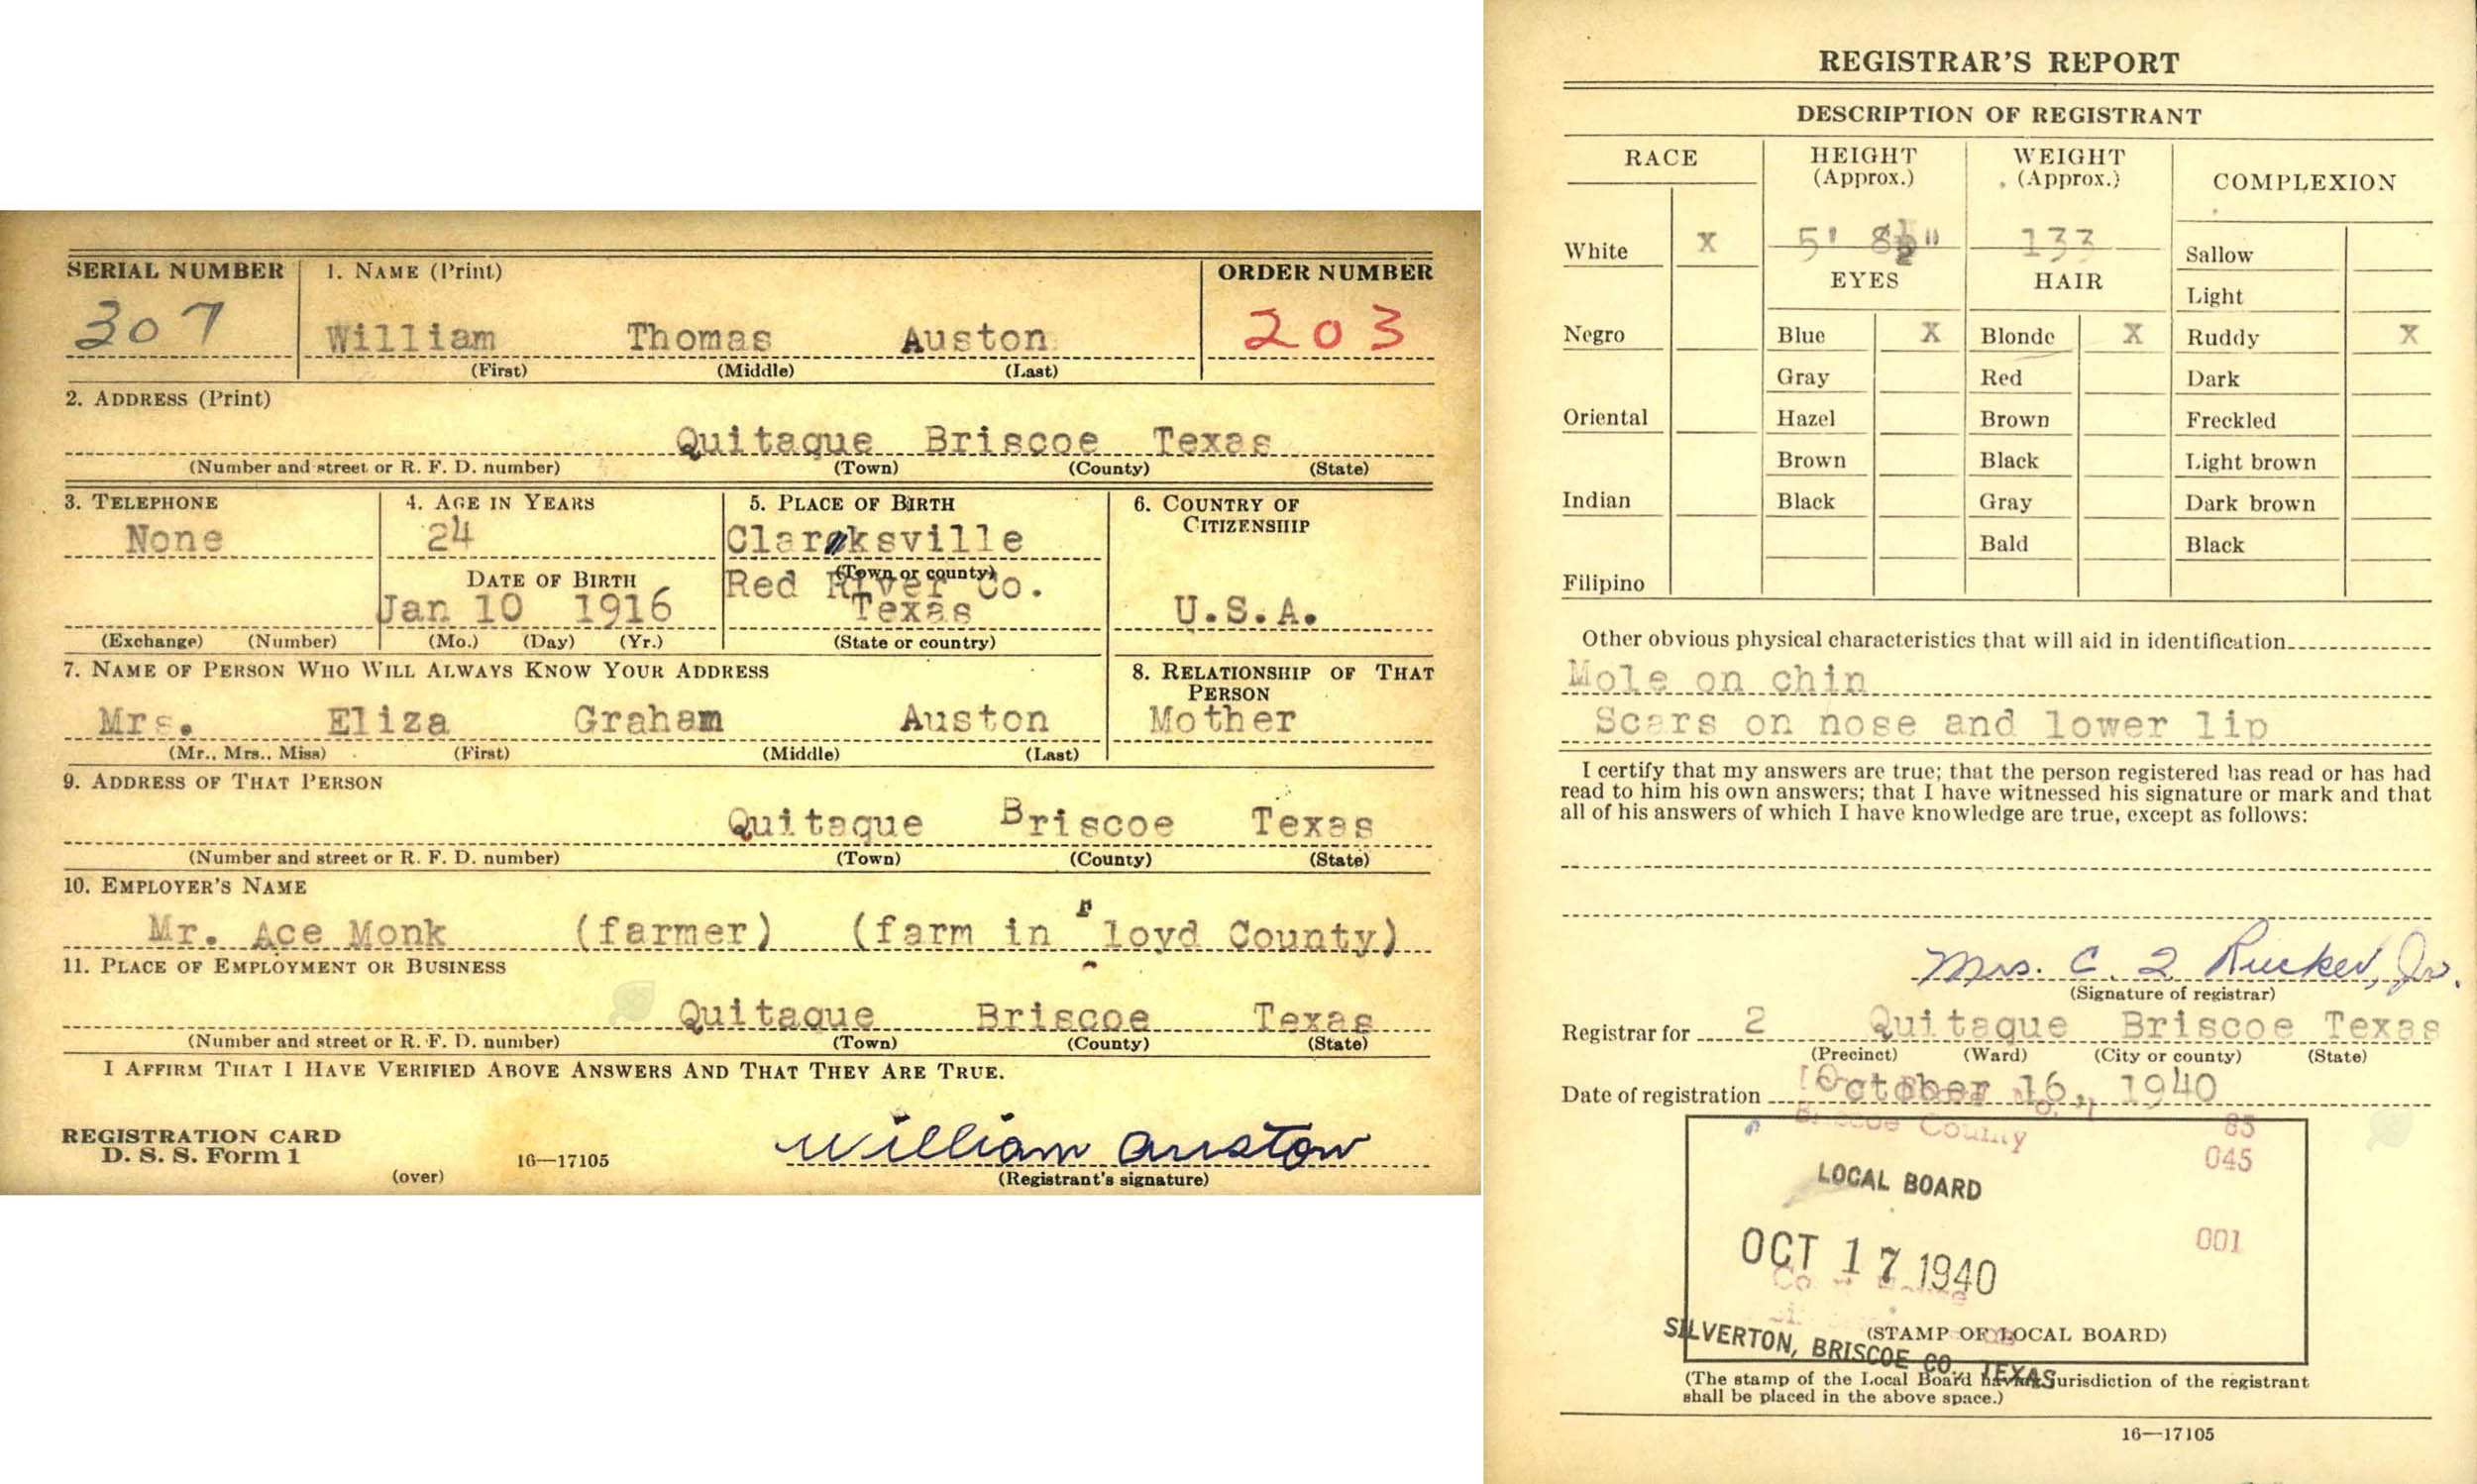 SERIAL NUMBER 1. NAME (Print) ORDER NUMBER
307 William Thomas Auston 203
(First) (Middle) (Last)
2. ADDRESS (Print)
Quitaque Briscoe Texas
(Number and street or R. F. D. number) (Town) (County) (State)
3. TELEPHONE 4. AGE IN YEARS 5. PLACE OF BIRTH 6. COUNTRY OF CITIZENSHIP
None 24 Clarksville
(Town or county)
DATE OF BIRTH Red River Co.
Jan 10 1916 Texas U.S.A.
(Exchange) (Number) (Mo.) (Day) (Yr.) (State or country)
7. NAME OF PERSON WHO WILL ALWAYS KNOW YOUR ADDRESS 8. RELATIONSHIP OF THAT PERSON
Mrs. Eliza Graham Auston Mother
(Mr., Mrs., Miss) (First) (Middle) (Last)
9. ADDRESS OF THAT PERSON
Quitaque Briscoe Texas
(Number and street or R. F. D. number) (Town) (County) (State)
10. EMPLOYER'S NAME
Mr. Ace Monk (farmer) (farm in Floyd County)
11. PLACE OF EMPLOYMENT OR BUSINESS
Quitaque Briscoe Texas
(Number and street or R. F. D. number) (Town) (County) (State)
I AFFIRM THAT I HAVE VERIFIED ABOVE ANSWERS AND THAT THEY ARE TRUE.
REGISTRATION CARD
D. S. S. Form 1
(over) 16—17105 William Auston
(Registrant's signature)
REGISTRAR'S REPORT
DESCRIPTION OF REGISTRANT
RACE HEIGHT (Approx.) WEIGHT (Approx.) COMPLEXION
White X 5' 8½" 133 Sallow
EYES HAIR Light
Negro Blue X Blonde X Ruddy X
Gray Red Dark
Oriental Hazel Brown Freckled
Brown Black Light brown
Indian Black Gray Dark brown
Bald Black
Filipino
Other obvious physical characteristics that will aid in identification
Mole on chin
Scars on nose and lower lip
I certify that my answers are true; that the person registered has read or has had
read to him his own answers; that I have witnessed his signature or mark and that
all of his answers of which I have knowledge are true, except as follows:
Mrs. C. Q Rucker, Jr.
(Signature of registrar)
Registrar for 2 Quitaque Briscoe Texas
(Precinct) (Ward) (City or county) (State)
Date of registration October 16, 1940
Briscoe County 83
045
LOCAL BOARD
001
OCT 17 1940
(STAMP OF LOCAL BOARD)
SILVERTON, BRISCOE CO., TEXAS
(The stamp of the Local Board having jurisdiction of the registrant
shall be placed in the above space.)
16—17105